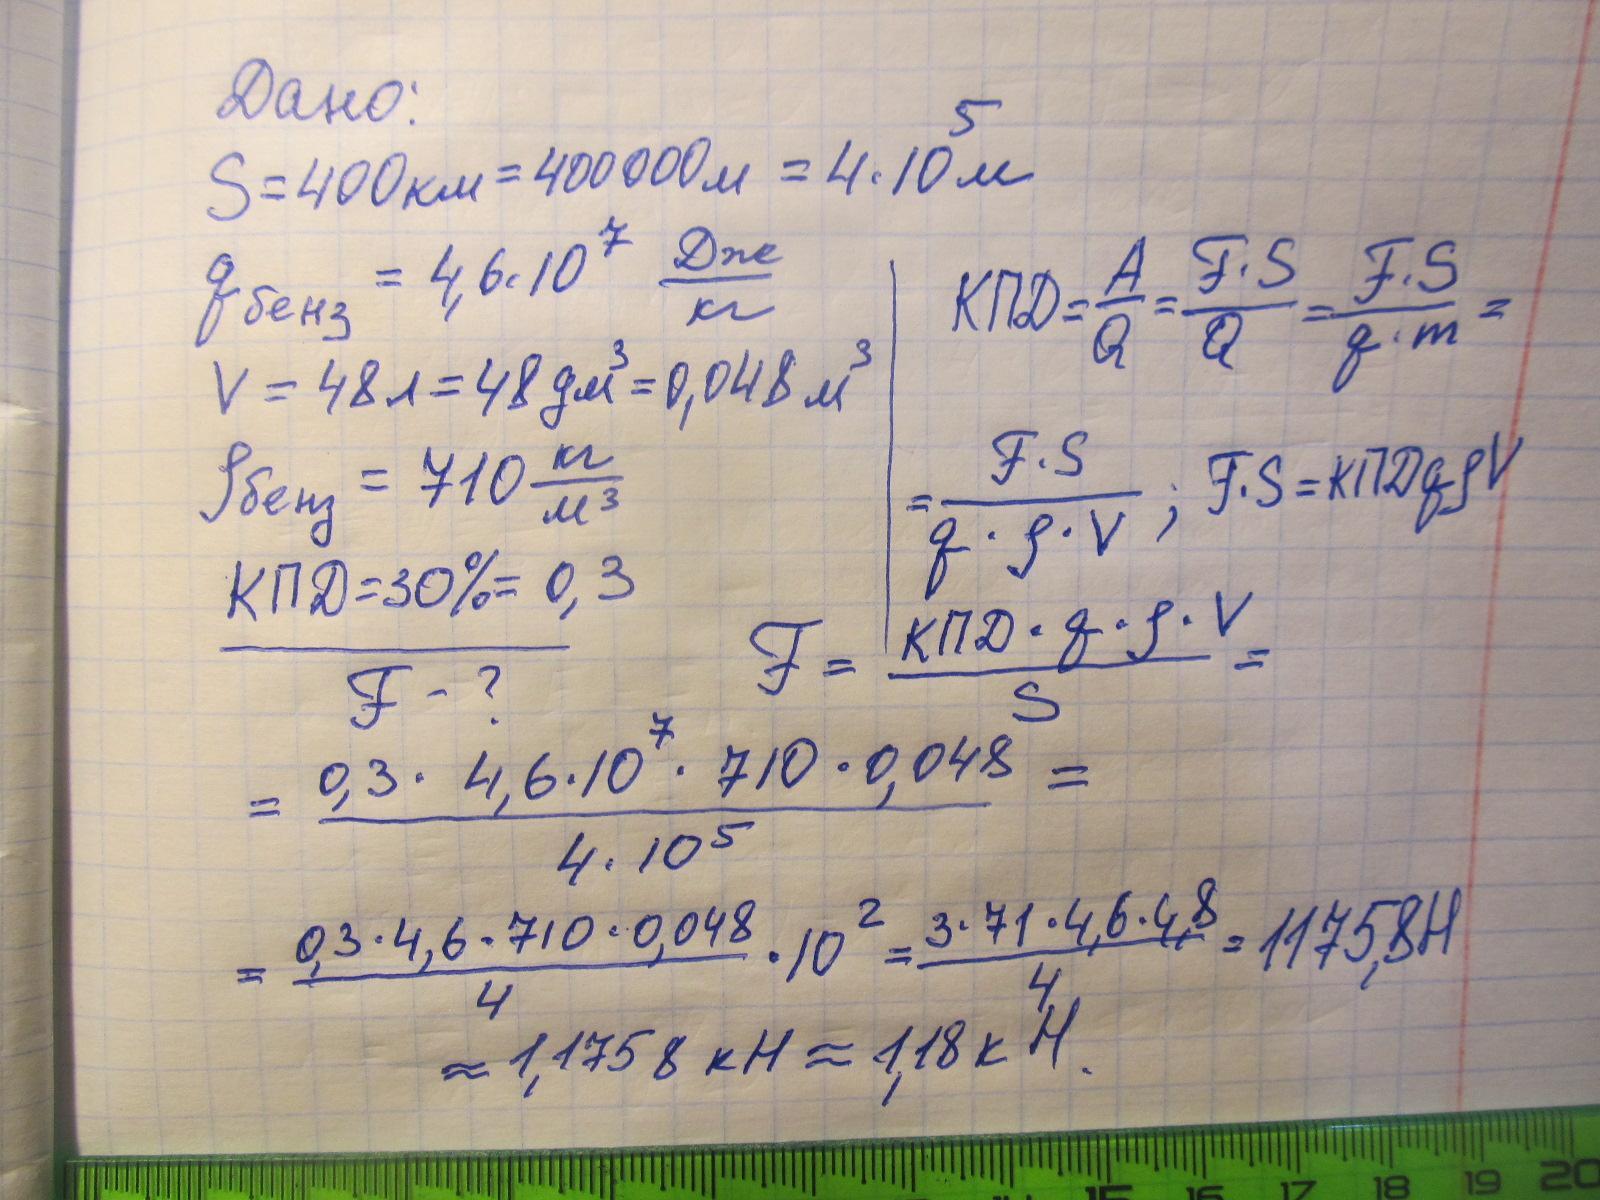 Дано:
S = 400км = 400000м = 4·10⁵м
qбенз = 4,6·10⁷ Дж/кг
V = 48л = 48дм³ = 0,048м³
ρбенз = 710 кг/м³
КПД = 30% = 0,3
F - ?
КПД = A/Q = F·S/Q = F·S/q·m =
= F·S/q·ρ·V ; F·S = КПДqρV
F = КПД·q·ρ·V/S =
= 0,3· 4,6·10⁷· 710·0,048/4·10⁵ =
= 0,3·4,6·710·0,048/4 ·10² = 3·71·4,6·4,8/4 = 1175,8Н
≈ 1,1758 кН ≈ 1,18 кН.
15 16 17 18 19 20